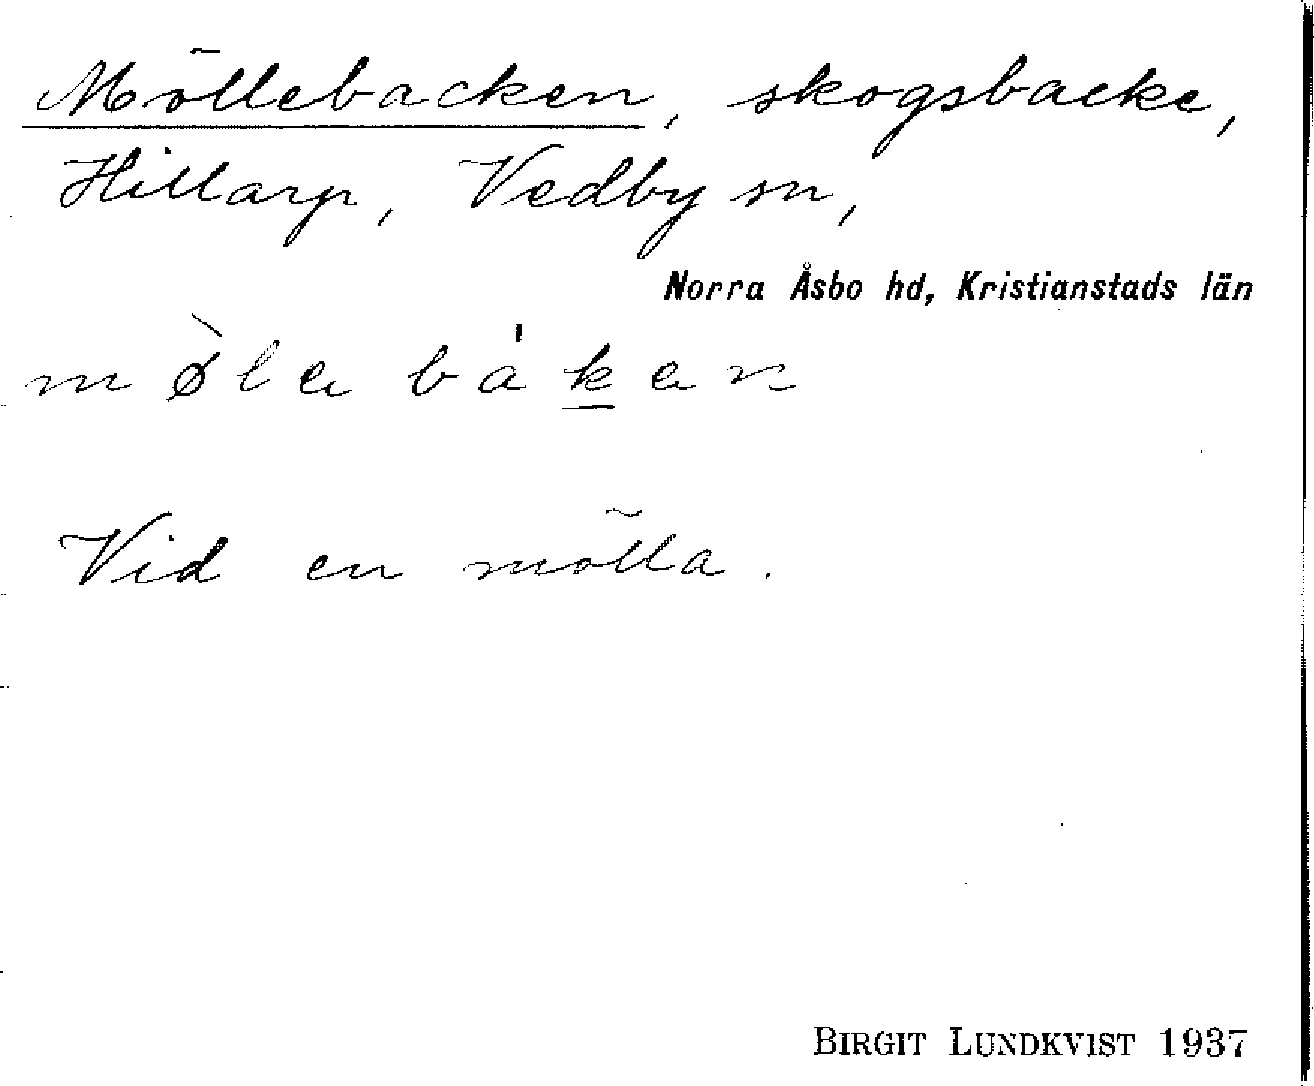 Möllebacken, skogsbacke,
Hillarp, Vedby sn,
Norra Åsbo hd, Kristianstads län
mø̀la bákan
Vid en mölla.
BIRGIT LUNDKVIST 1937